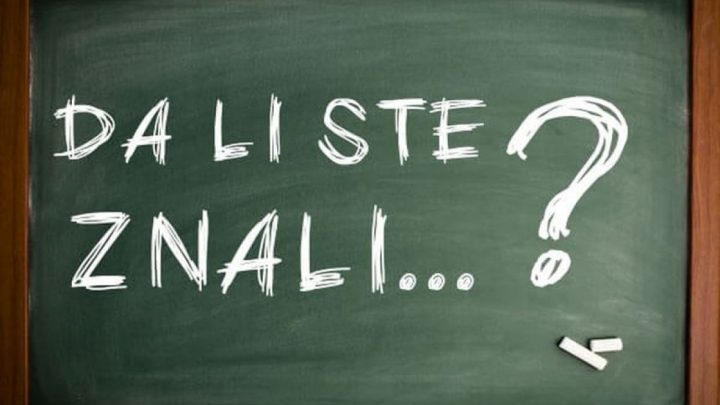 DA LI STE
ZNALI...?